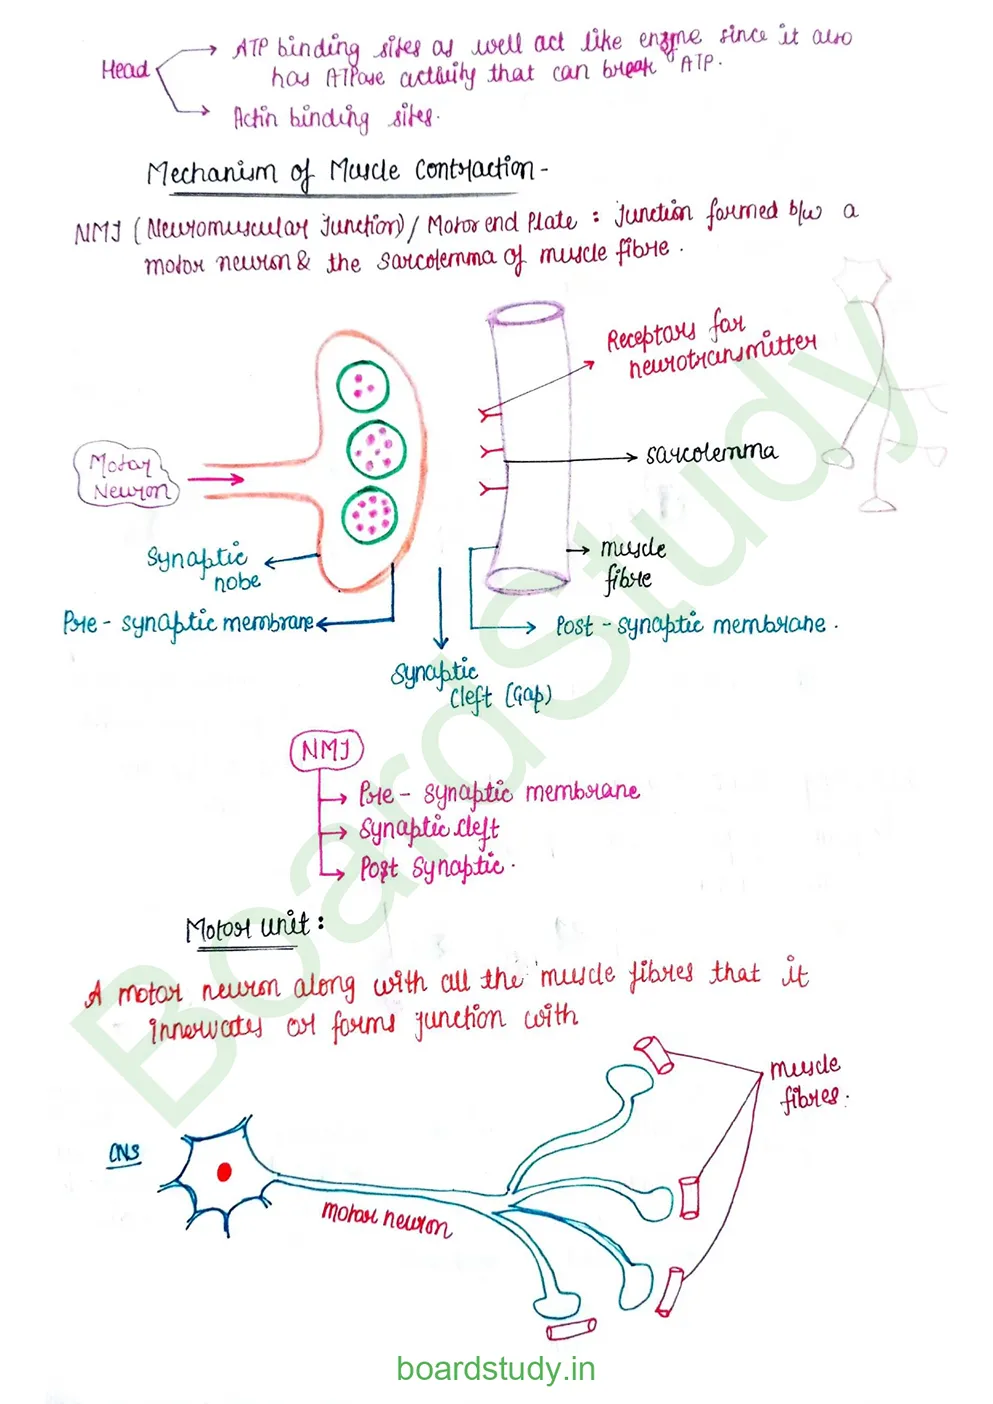 Head
ATP binding sites as well act like enzyme since it also
has ATPase activity that can break ATP.
Actin binding sites.
Mechanism of Muscle Contraction -
NMJ (Neuromuscular Junction) / Motor end Plate : Junction formed b/w a
motor neuron & the sarcolemma of muscle fibre.
Receptors for
neurotransmitter
Motor
Neuron
sarcolemma
Synaptic
nobe
muscle
fibre
Pre - synaptic membrane
Post - synaptic membrane.
Synaptic
Cleft (Gap)
NMJ
Pre - synaptic membrane
Synaptic cleft
Post Synaptic.
Motor unit :
A motor neuron along with all the muscle fibres that it
innervates or forms junction with
muscle
fibres.
CNS
motor neuron
BoardStudy
boardstudy.in